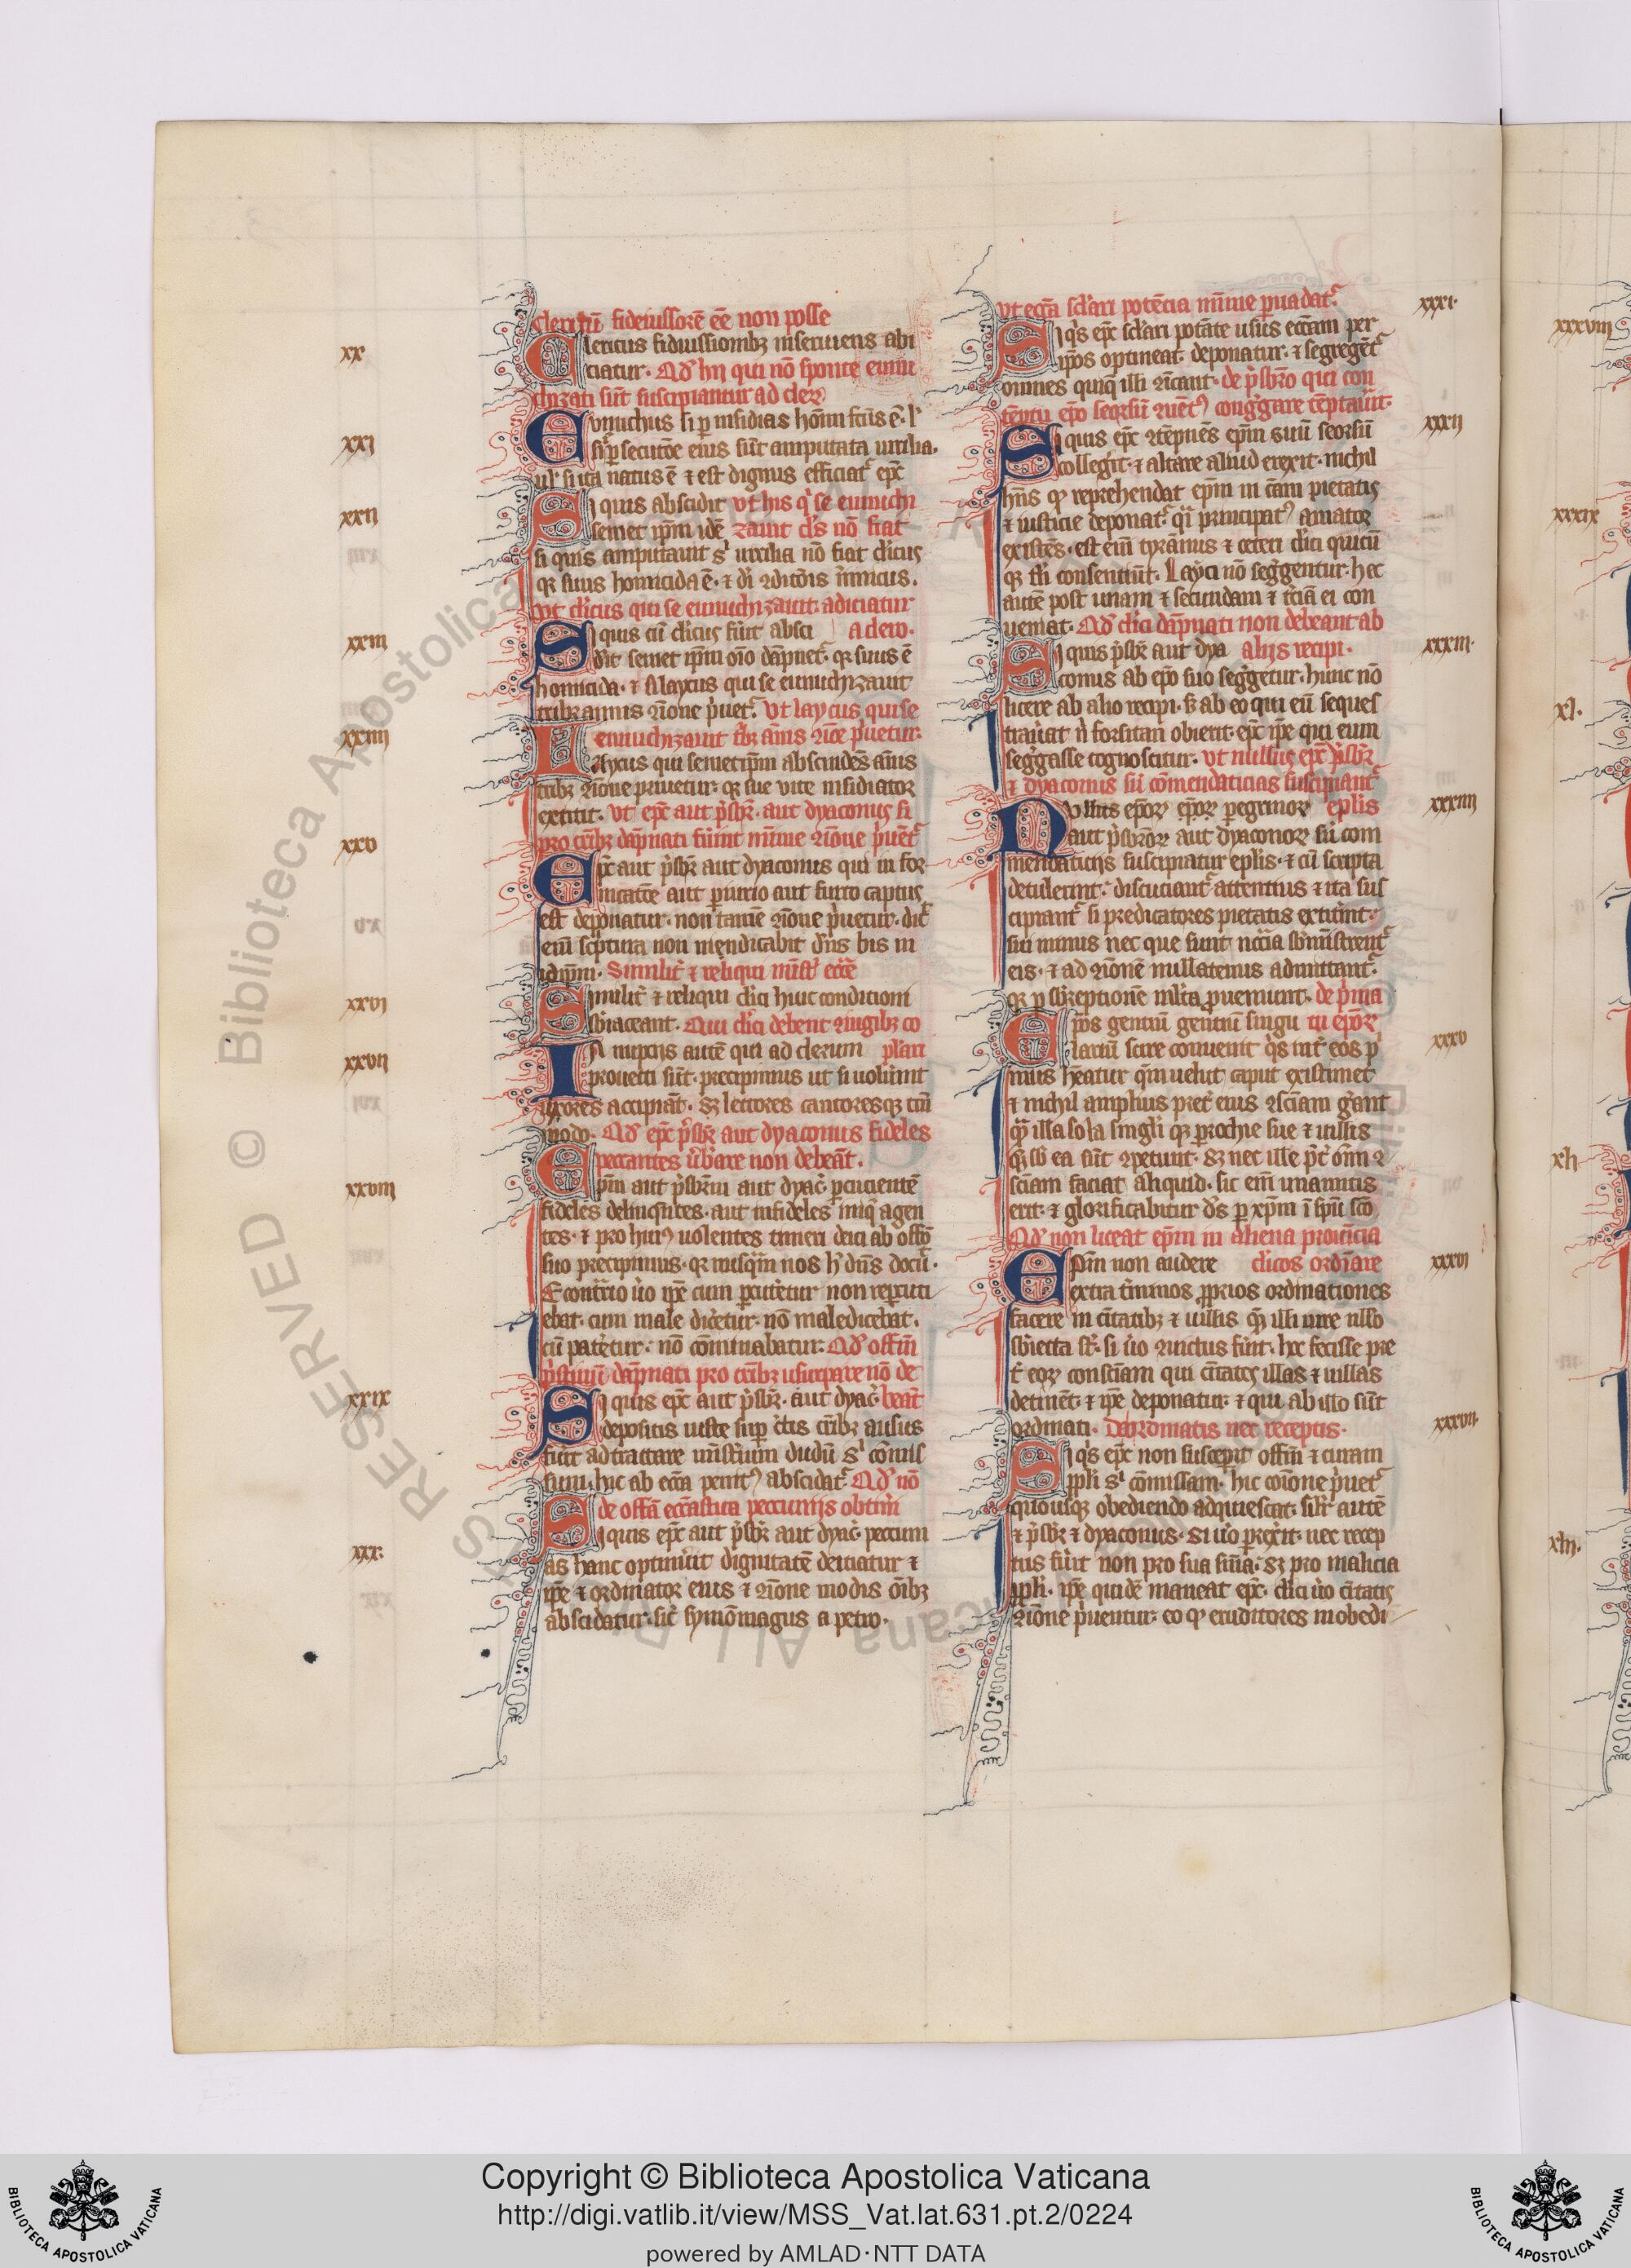 clericum fideiussorē eē non posse
xx
Clericus fidiussionibꝫ inseruiens abi
ciatur. Qd' hii qui nō sponte eunu
chizati sūt suscipiantur ad cleꝝ
xxi
Eunuchus si ꝑ insidias hoīm fc̄us ē. ł
si ꝑsecutōe eius sūt amputata uirilia.
ul' si ita natus ē ⁊ est dignus efficiat᷑ ep̄c
xxii
Si quis abscidit ut his qͥ se eunuchi
semet ip̄m idē zauit cl's nō fiat
si quis amputauit sͥ uirilia nō fiat cl'icus
qꝛ suus homicida ē. ⁊ dī ꝯditōis inimicus.
Vt cl'icus qui se eunuchizauit. adiciatur
xxiii
Si quis cū cl'icus fūit absci a clero.
dit semet ip̄m oīo dāpnet᷑. qꝛ suus ē
homicida. ⁊ si laycus qui se eunuchizauit
tribꝫ annis ꝯione pͥuet᷑. Vt laycus qui se
xxiiii
eunuchizauit tͥbꝫ ānis ꝯiōe pͥuetur.
Laycus qui semetip̄m abscindēs ānis
tribꝫ ꝯione priuetur. qꝛ sue vite insidiator
extitit. Vt ep̄c aut pͥsbꝝ. aut dyaconus si
pro cͥibꝫ dāpnati fūint mīme ꝯione pͥuēt᷑
xxv
Ep̄c aut pͥsbꝝ aut dyaconus qui in for
nicatōe aut ꝑiurio aut furto captus
est deponatur. non tamē ꝯione pͥuetur. dic̄
eni sc͛ptura non uiendicabit dn̄s bis in
idip̄m. Similit᷑ ⁊ reliqui mīst' ecc̄e
xxvi
Similit᷑ ⁊ reliqui cl'ici huic conditioni
sb'iaceant. Qui cl'ici debent ꝯiugibꝫ co
xxvii
In nuptiis autē qui ad clerum pl'ari
prouecti sūt. precipimus ut si uolūint
uxores accipiāt. sꝫ lectores cantoresqꝫ tm̄
modo. Qd' ep̄c pͥsbꝝ aut dyaconus fideles
peccantes ūb'are non debeāt.
xxviii
Ep̄m aut pͥsbr̄m aut dyac̄. ꝑcucientē
fideles delinqͥntes. aut infideles iniq̄ agen
tes. ⁊ pro huiꝰ uolentes timeri deici ab offō
suo precipimus. qꝛ nusqͣm nos h' dn̄s docu.
Econtͣrio ūo ip̄e cum ꝑcutetur non reꝑcuti
ebat. cum male diceretur. nō maledicebat.
cū pateretur. nō cōminabatur. Qd' offm̄
pͥstinū dāpnati pro cͥibꝫ usurpare nō de
xxix
Si quis ep̄c aut pͥsbꝝ. aut dyac̄. beāt
depositus iuste suꝑ ctis cͥibꝫ ausus
fūit adtractare ministriū dudū sͥ cōmis
sum. hic ab ecc̄a penitꝰ abscidat᷑. Qd' nō
de offā ecc̄astica peccuniis obtīri
xxx.
Si quis ep̄c aut pͥsbꝝ aut dyac̄ peccuni
as hanc optinūit dignitatē deiciatur ⁊
ip̄e ⁊ ordinator eius ⁊ ꝯione modis oībꝫ
abscidatur. sic̄ symōmagus a petro.
Vt ecc̄a scl'ari potēcia mīme ꝑuadat᷑.
xxxi.
Si qͥs ep̄c scl'ari potāte usus ecc̄am per
ip̄os optineat. deponatur. ⁊ segregēt᷑
omnes quiqꝫ illi ꝯīcant. de pͥsbr̄o qui con
tēptu ep̄o seorsū ꝯuētꝰ cong͛gare tēptauit.
xxxii
Si quis ep̄c ꝯtēpnēs ep̄m suū seorsū
collegit. ⁊ altare aliud erexit. nichil
hn̄s qͦ reprehendat ep̄m in cām pietatis
⁊ iusticie deponat᷑. qͣi principatꝰ amator
existēs. est eni tyrānus ⁊ ceteri cl'ici quicū
qꝫ tali consentiūt. Layci nō seg͛gentur. hec
autē post unam ⁊ secundam ⁊ tciā ei con
ueniat. Qd' cl'ici dāpnati non debeant ab
xxxiii.
Si quis pͥsbꝝ aut dya aliis recipi.
conus ab ep̄o suo seg͛getur. hunc nō
licere ab alio recipi. sꝫ ab eo qui eū seques
traūat n̄ forsitan obierit. ep̄c ip̄e qui eum
seg͛gasse cognoscitur. Vt nullus ep̄c pͥsbꝝ
⁊ dyaconus sn̄ cōmendaticias suscipiant᷑
xxxiiii
Nullus ep̄oꝝ ep̄oꝝ peg͛noꝝ epl'is
aut pͥsbr̄oꝝ aut dyaconoꝝ sn̄ com
mendaticiis suscipiatur epl'is. ⁊ cū scripta
detulerint. discuciant᷑ attentius ⁊ ita sus
cipiant᷑ si predicatores pietatis extiūint.
sin minus nec que sunt nccīa sb'ministrent᷑
eis. ⁊ ad ꝯionē nullatenus admittant᷑.
qꝛ ꝑ sb'reptionē ml'ta ꝓueniunt. de pͥma
xxxv
Ep̄os gentiū gentiū singu tu ep̄oꝝ
larum scire conuenit qͥs int᷑ eos pͥ
mus hēatur qm̄ uelut caput existimet
⁊ nichil amplius pret᷑ eius ꝯsciām g͛ant
qͣm illa sola singl'i qꝫ ꝑrochie sue ⁊ uillis
q̄ sb' ea sūt ꝯpetunt. sꝫ nec ille pͥt᷑ oīm ꝯ
sciām faciat aliquid. sic enī unanimis
erit. ⁊ glorificabitur ds̄ ꝑ xp̄m ī sp̄u scō
Qd' non liceat ep̄m in aliena prouīcia
xxxvi
Ep̄m non audere cl'icos ordīare
extra tͥminos ꝓprios ordinationes
facere in ciuitatibꝫ ⁊ uillis q̄ illi iure nullo
sb'iecta st̄. si ūo ꝯuictus fūit. hoc fecisse pre
t᷑ eoꝝ consciām qui ciuitates illas ⁊ uillas
detinēt. ⁊ ip̄e deponatur. ⁊ qui ab illo sūt
ordinati. De ordinatis nec receptis.
xxxvii.
Si qͥs ep̄c non suscepit offm̄ ⁊ curam
ppl'i sͥ cōmissam. hic cōione pͥuet᷑
quousqꝫ obediendo adquiescat. silr̄ autē
⁊ pͥsbꝝ ⁊ dyaconus. si ūo ꝑrexit. nec recep
tus fūit non pro sua sn̄ia. sꝫ pro malicia
ppl'i. ip̄e quidē maneat ep̄c. cl'ici ūo ciuitatis
ꝯione pͥuentur. eo qͦ eruditores inobedi
xxxviii
xxxix
xl.
xli
xlii.
© Biblioteca Apostolica Vaticana ALL RIGHTS RESERVED
BIBLIOTECA APOSTOLICA VATICANA
Copyright © Biblioteca Apostolica Vaticana
http://digi.vatlib.it/view/MSS_Vat.lat.631.pt.2/0224
powered by AMLAD·NTT DATA
BIBLIOTECA APOSTOLICA VATICANA